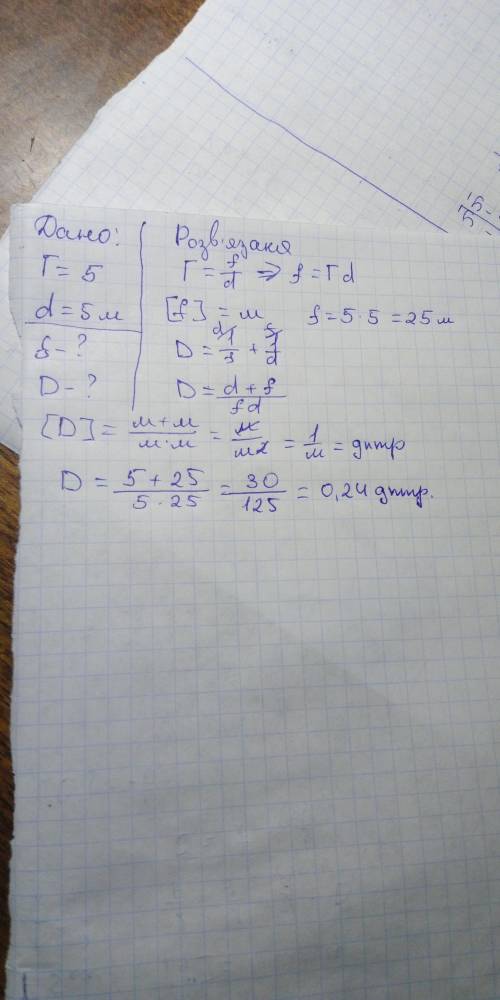 Дано:
Г = 5
d = 5 м
f - ?
D - ?
Розв'язаня
Г = f/d => f = Гd
[f] = м f = 5·5 = 25 м
D = d\1/f + f\1/d
D = d + f / fd
[D] = м + м / м·м = м / м2 = 1/м = дптр
D = 5 + 25 / 5·25 = 30 / 125 = 0,24 дптр.